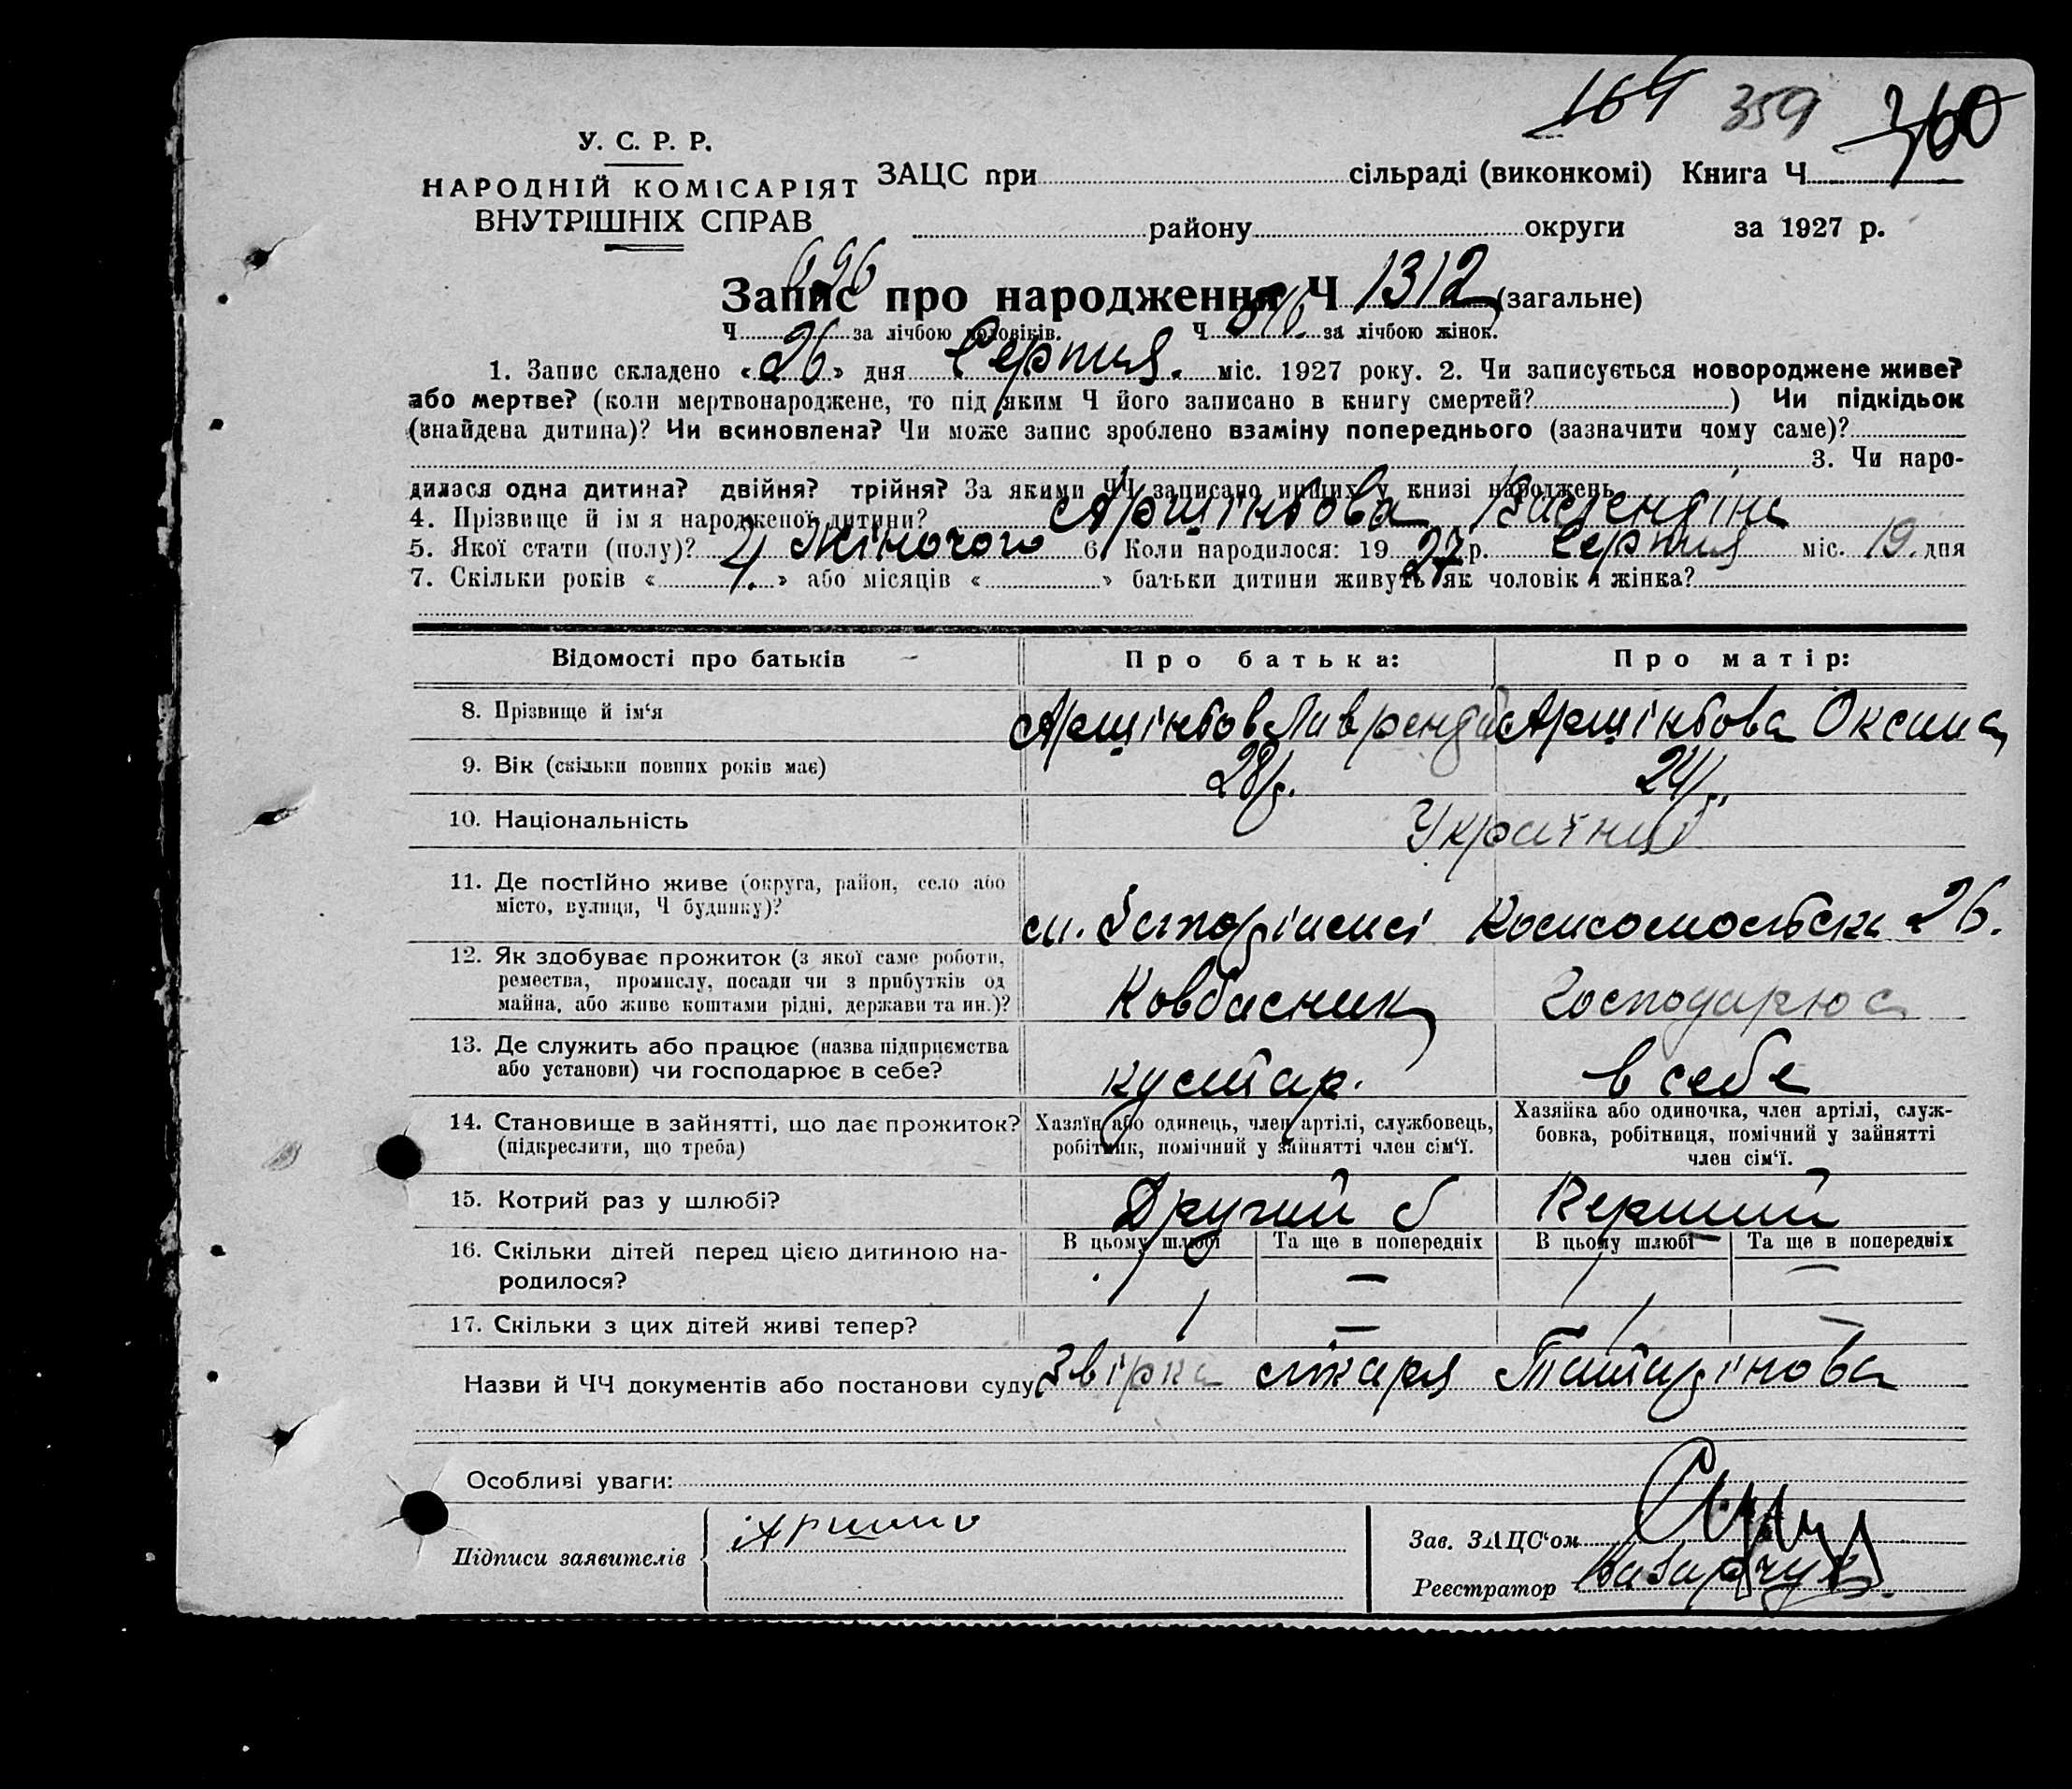 164 359 360
У. С. Р. Р.
НАРОДНІЙ КОМІСАРІЯТ
ВНУТРІШНІХ СПРАВ
ЗАЦС при сільраді (виконкомі) Книга Ч
району округи за 1927 р.
696
Запис про народження Ч 1312 (загальне)
Ч за лічбою чоловіків. Ч 616 за лічбою жінок.
1. Запис складено «26» дня Серпня. міс. 1927 року. 2. Чи записується новороджене живе?
або мертве? (коли мертвонароджене, то під яким Ч його записано в книгу смертей? ) Чи підкідьок
(внайдена дитина)? Чи всиновлена? Чи може запис зроблено взаміну попереднього (зазначити чому саме)?
3. Чи наро-
дилася одна дитина? двійня? трійня? За якими ЧЧ записано инших у книзі народжень
4. Прізвище й ім я народженої дитини? Арщінбова Валентіна
5. Якої стати (полу)? Жіночого 6. Коли народилося: 19 27 р. Серпня міс. 19. дня
7. Скільки років « 4. » або місяців « » батьки дитини живуть як чоловік і жінка?
Відомості про батьків Про батька: Про матір:
8. Прізвище й ім‘я Арщінбов Лаврендій Арщінбова Оксана
9. Вік (скільки повних років має) 28р. 24р.
10. Національність Українці
11. Де постійно живе (округа, район, село або
місто, вулиця, Ч будинку)? 26.
12. Як здобуває прожиток (з якої саме роботи,
ремества, промислу, посади чи з прибутків од
майна, або живе коштами рідні, держави та ин.)? Ковбасник Господарює
13. Де служить або працює (назва підприємства
або установи) чи господарює в себе? кустар. в себе
14. Становище в зайнятті, що дає прожиток?
(підкреслити, що треба)
Хазяїн або одинець, член артілі, службовець,
робітник, помічний у зайнятті член сім‘ї.
Хазяйка або одиночка, член артілі, служ-
бовка, робітниця, помічний у зайнятті
член сім‘ї.
15. Котрий раз у шлюбі? Другий б Перший
16. Скільки дітей перед цією дитиною на-
родилося?
В цьому шлюбі Та ще в попередніх В цьому шлюбі Та ще в попередніх
1 — 1 —
17. Скільки з цих дітей живі тепер? 1 — 1 —
Назви й ЧЧ документів або постанови суду Звірка лікаря
Особливі уваги:
Підписи заявителів
Зав. ЗАЦС‘ом
Реєстратор